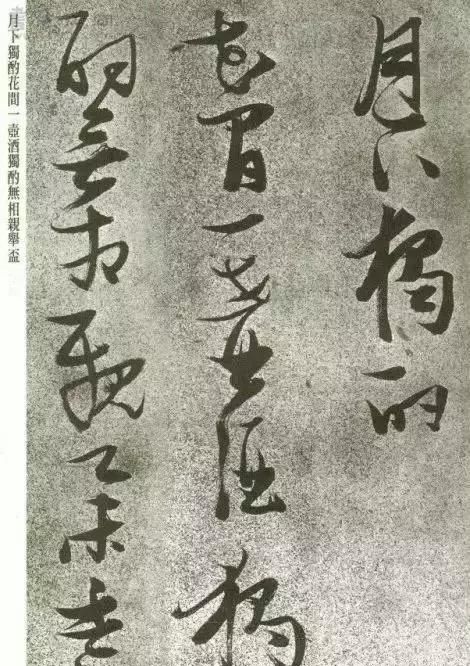 月下獨酌
花間一壺酒獨
酌無相親舉盃
月下獨酌花間一壺酒獨酌無相親舉盃